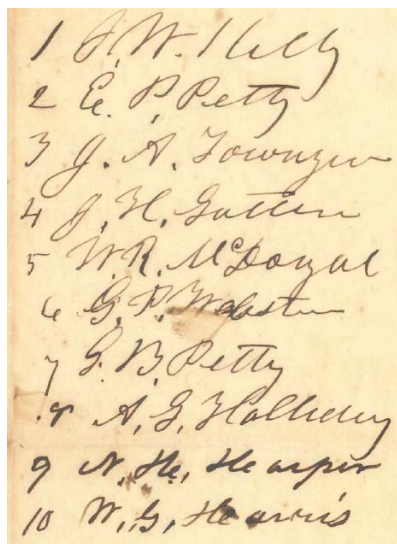 1 J. W. Kelly
2 E. P. Petty
3 J. A. Townzen
4 J. H. Gatten
5 W. R. McDonal
6 G. P. Webster
7 G. B. Petty
8 A. G. Holliday
9 N. H. Harper
10 W. G. Harris